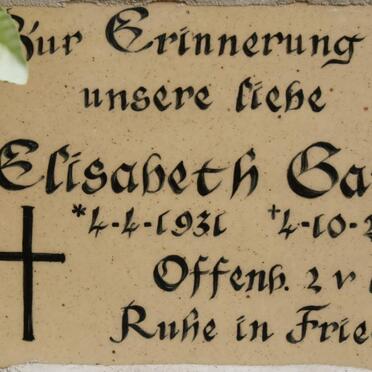 Zur Erinnerung
unsere liebe
Elisabeth
*4-4-1931 †4-10-
Offenb. 2 v
Ruhe in